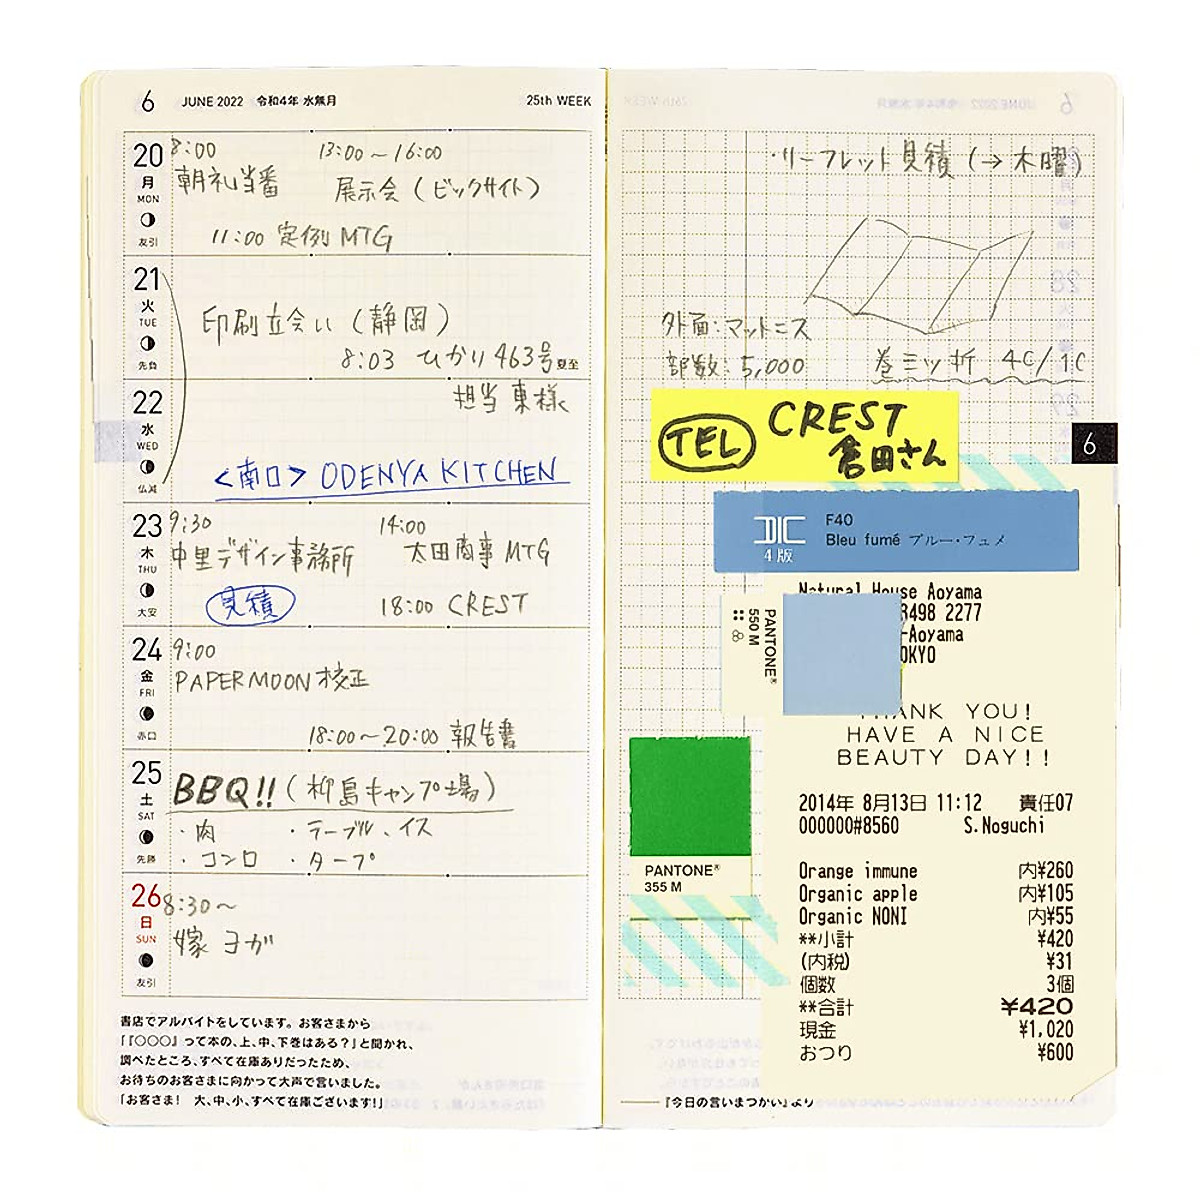 6 JUNE 2022 令和4年 水無月 25th WEEK
20 月 MON 友引
8:00 13:00～16:00
朝礼当番 展示会(ビックサイト)
11:00 定例 MTG
21 火 TUE 先負
印刷立会い(静岡)
8:03 ひかり463号 夏至
22 水 WED 仏滅
担当 東様
<南口> ODENYA KITCHEN
23 木 THU 大安
9:30 14:00
中里デザイン事務所 太田商事 MTG
見積 18:00 CREST
24 金 FRI 赤口
9:00
PAPERMOON 校正
18:00～20:00 報告書
25 土 SAT 先勝
BBQ!!(柳島キャンプ場)
・肉 ・テーブル、イス
・コンロ ・タープ
26 日 SUN 友引
8:30～
嫁 ヨガ
書店でアルバイトをしています。お客さまから
「『〇〇〇』って本の、上、中、下巻はある?」と聞かれ、
調べたところ、すべて在庫ありだったため、
お待ちのお客さまに向かって大声で言いました。
「お客さま! 大、中、小、すべて在庫ございます!」
・リーフレット見積(→木曜)
外面:マットニス
部数:5,000 巻三ツ折 4C/1C
TEL CREST
倉田さん
6
DIC 4版
F40
Bleu fumé ブルー・フュメ
Natural House Aoyama
3498 2277
-Aoyama
OKYO
PANTONE®
550 M
THANK YOU!
HAVE A NICE
BEAUTY DAY!!
PANTONE®
355 M
2014年 8月13日 11:12 責任07
000000#8560 S.Noguchi
Orange immune 内¥260
Organic apple 内¥105
Organic NONI 内¥55
**小計 ¥420
(内税) ¥31
個数 3個
**合計 ¥420
現金 ¥1,020
おつり ¥600
『今日の言いまつがい』より